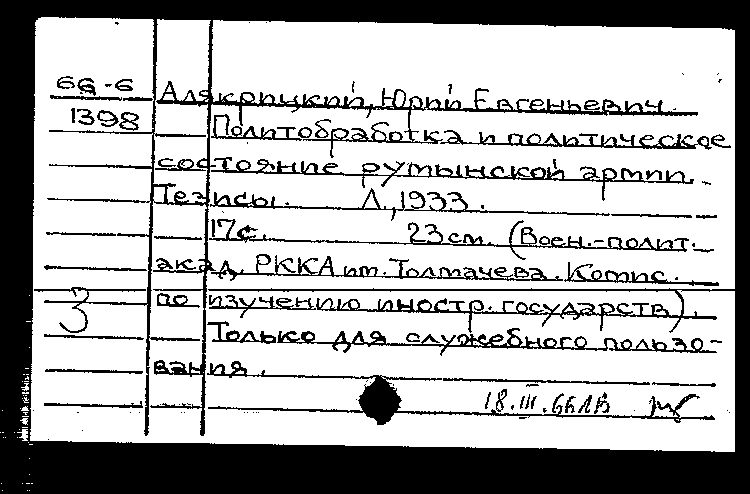 66-6 Алякрицкий, Юрий Евгеньевич.
1398 Политобработка и политическое
состояние румынской армии.
Тезисы. Л., 1933.
17с. 23см. (Воен.-полит.
акад. РККА им. Толмачева. Комис.
3 по изучению иностр. государств).
Только для служебного пользо-
вания.
18.III.66